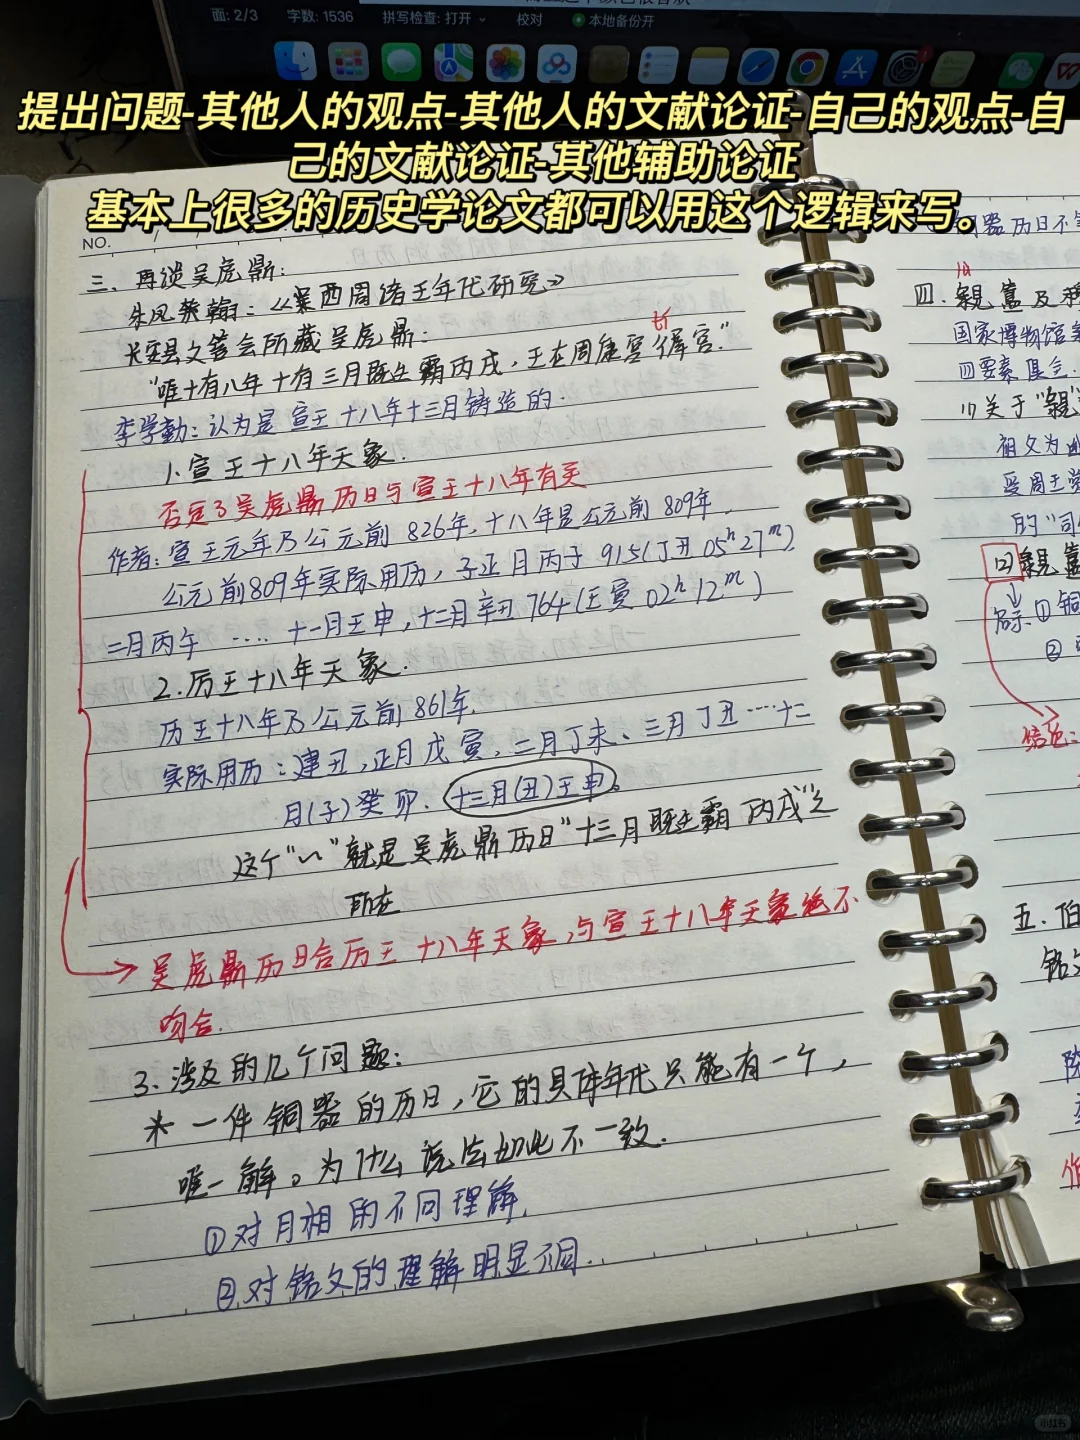 面: 2/3 字数: 1536 拼写检查: 打开 校对 本地备份开
提出问题-其他人的观点-其他人的文献论证-自己的观点-自
己的文献论证-其他辅助论证
基本上很多的历史学论文都可以用这个逻辑来写。
NO.
三、再谈吴虎鼎：
朱凤瀚：《西周诸王年代研究》
长安县文管会所藏吴虎鼎：
"唯十有八年十有三月既生霸丙戌，王在周康宫徲宫."
李学勤：认为是宣王十八年十三月铸造的.
1.宣王十八年天象.
否定了吴虎鼎历日与宣王十八年有关
作者：宣王元年乃公元前826年，十八年是公元前809年.
公元前809年实际用历，子正月丙子915(丁丑05h27m)
二月丙午 .... 十一月壬申，十二月辛丑764(壬寅02h12m)
2.厉王十八年天象.
历王十八年乃公元前861年.
实际用历：建丑，正月戊寅，二月丁未、三月丁丑....十二
月(子)癸卯. 十三月(丑)壬申.
这个"～"就是吴虎鼎历日"十三月既生霸丙戌"之
所在
吴虎鼎历日合厉王十八年天象，与宣王十八年天象绝不
吻合.
3.涉及的几个问题：
* 一件铜器的历日，它的具体年代只能有一个，
唯一解。为什么说法如此不一致.
①对月相的不同理解.
②对铭文的理解明显不同.
铜器历日不
四.親簋及
国家博物馆
四要素俱全.
(1)关于"親"
祖父为
受周王
的"司
(2)親簋
①铜
②
结论:
五.伯
铭文
小红书